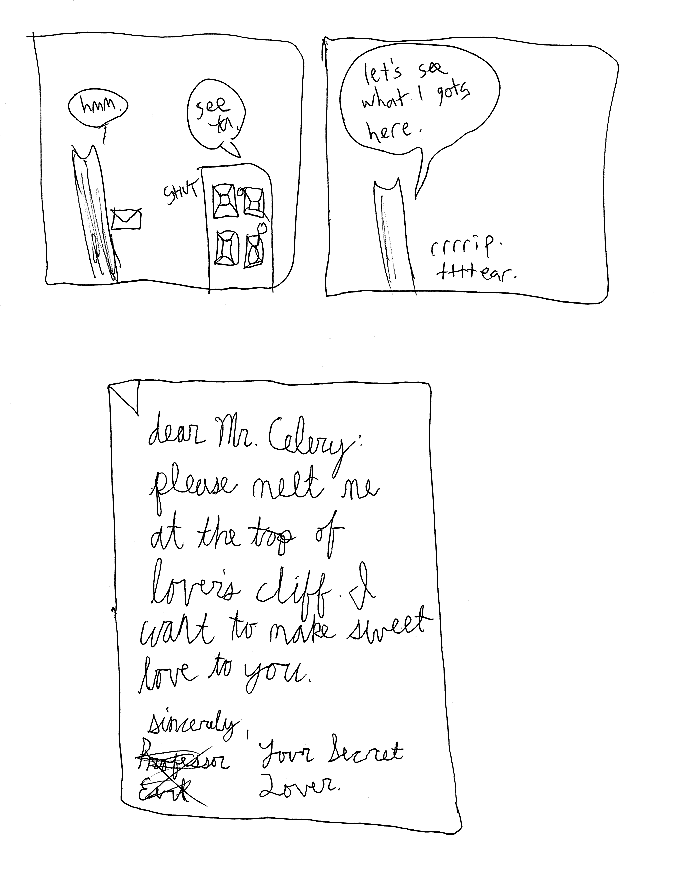 hmm.
see
ya.
SHUT
let's see
what I gots
here.
rrrrip.
ttttear.
dear Mr. Celery:
please melt me
at the top of
lover's cliff. I
want to make sweet
love to you.
sincerely,
Professor Your Secret
Lover.